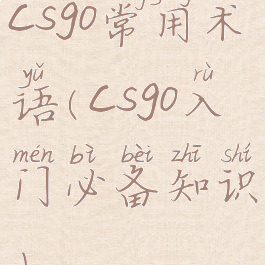 CSGO常用术
yǔ rù
语(CSGO入
mén bì bèi zhī shí
门必备知识